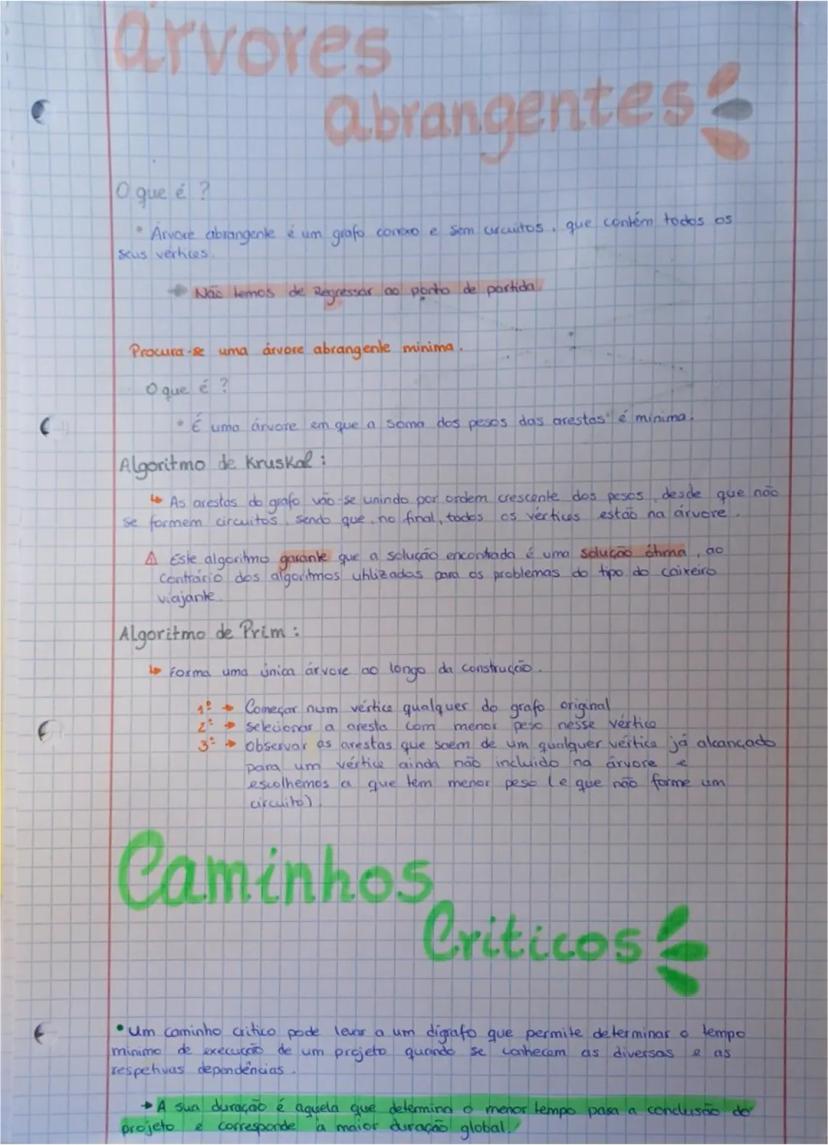 árvores
abrangentes
O que é ?
• Árvore abrangente é um grafo conexo e sem circuitos, que contém todos os
seus vértices.
→ Não temos de Regressar ao ponto de partida
Procura-se uma árvore abrangente mínima.
O que é ?
• É uma árvore em que a soma dos pesos das arestas é mínima.
Algoritmo de Kruskal :
↳ As arestas do grafo vão-se unindo por ordem crescente dos pesos, desde que não
se formem circuitos, sendo que, no final, todos os vértices estão na árvore.
⚠ Este algoritmo garante que a solução encontrada é uma solução ótima, ao
contrário dos algoritmos utilizados para os problemas do tipo do caixeiro
viajante.
Algoritmo de Prim :
↳ Forma uma única árvore ao longo da construção.
1º → Começar num vértice qualquer do grafo original
2º → Selecionar a aresta com menor peso nesse vértice
3º → Observar as arestas que saem de um qualquer vértice já alcançado
para um vértice ainda não incluído na árvore e
escolhemos a que tem menor peso (e que não forme um
circuito).
Caminhos
Críticos
• Um caminho crítico pode levar a um dígrafo que permite determinar o tempo
mínimo de execução de um projeto quando se conhecem as diversas e as
respetivas dependências.
→ A sua duração é aquela que determina o menor tempo para a conclusão do
projeto e corresponde à maior duração global.